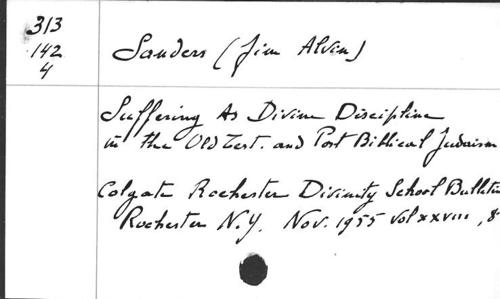 313
142
4
Sanders (Jim Alvin)
Suffering As Divine Discipline
in the Old Test. and Post Biblical Judaism
Colgate Rochester Divinity School Bulletin
Rochester N.Y. Nov. 1955 Vol xxviii, 8